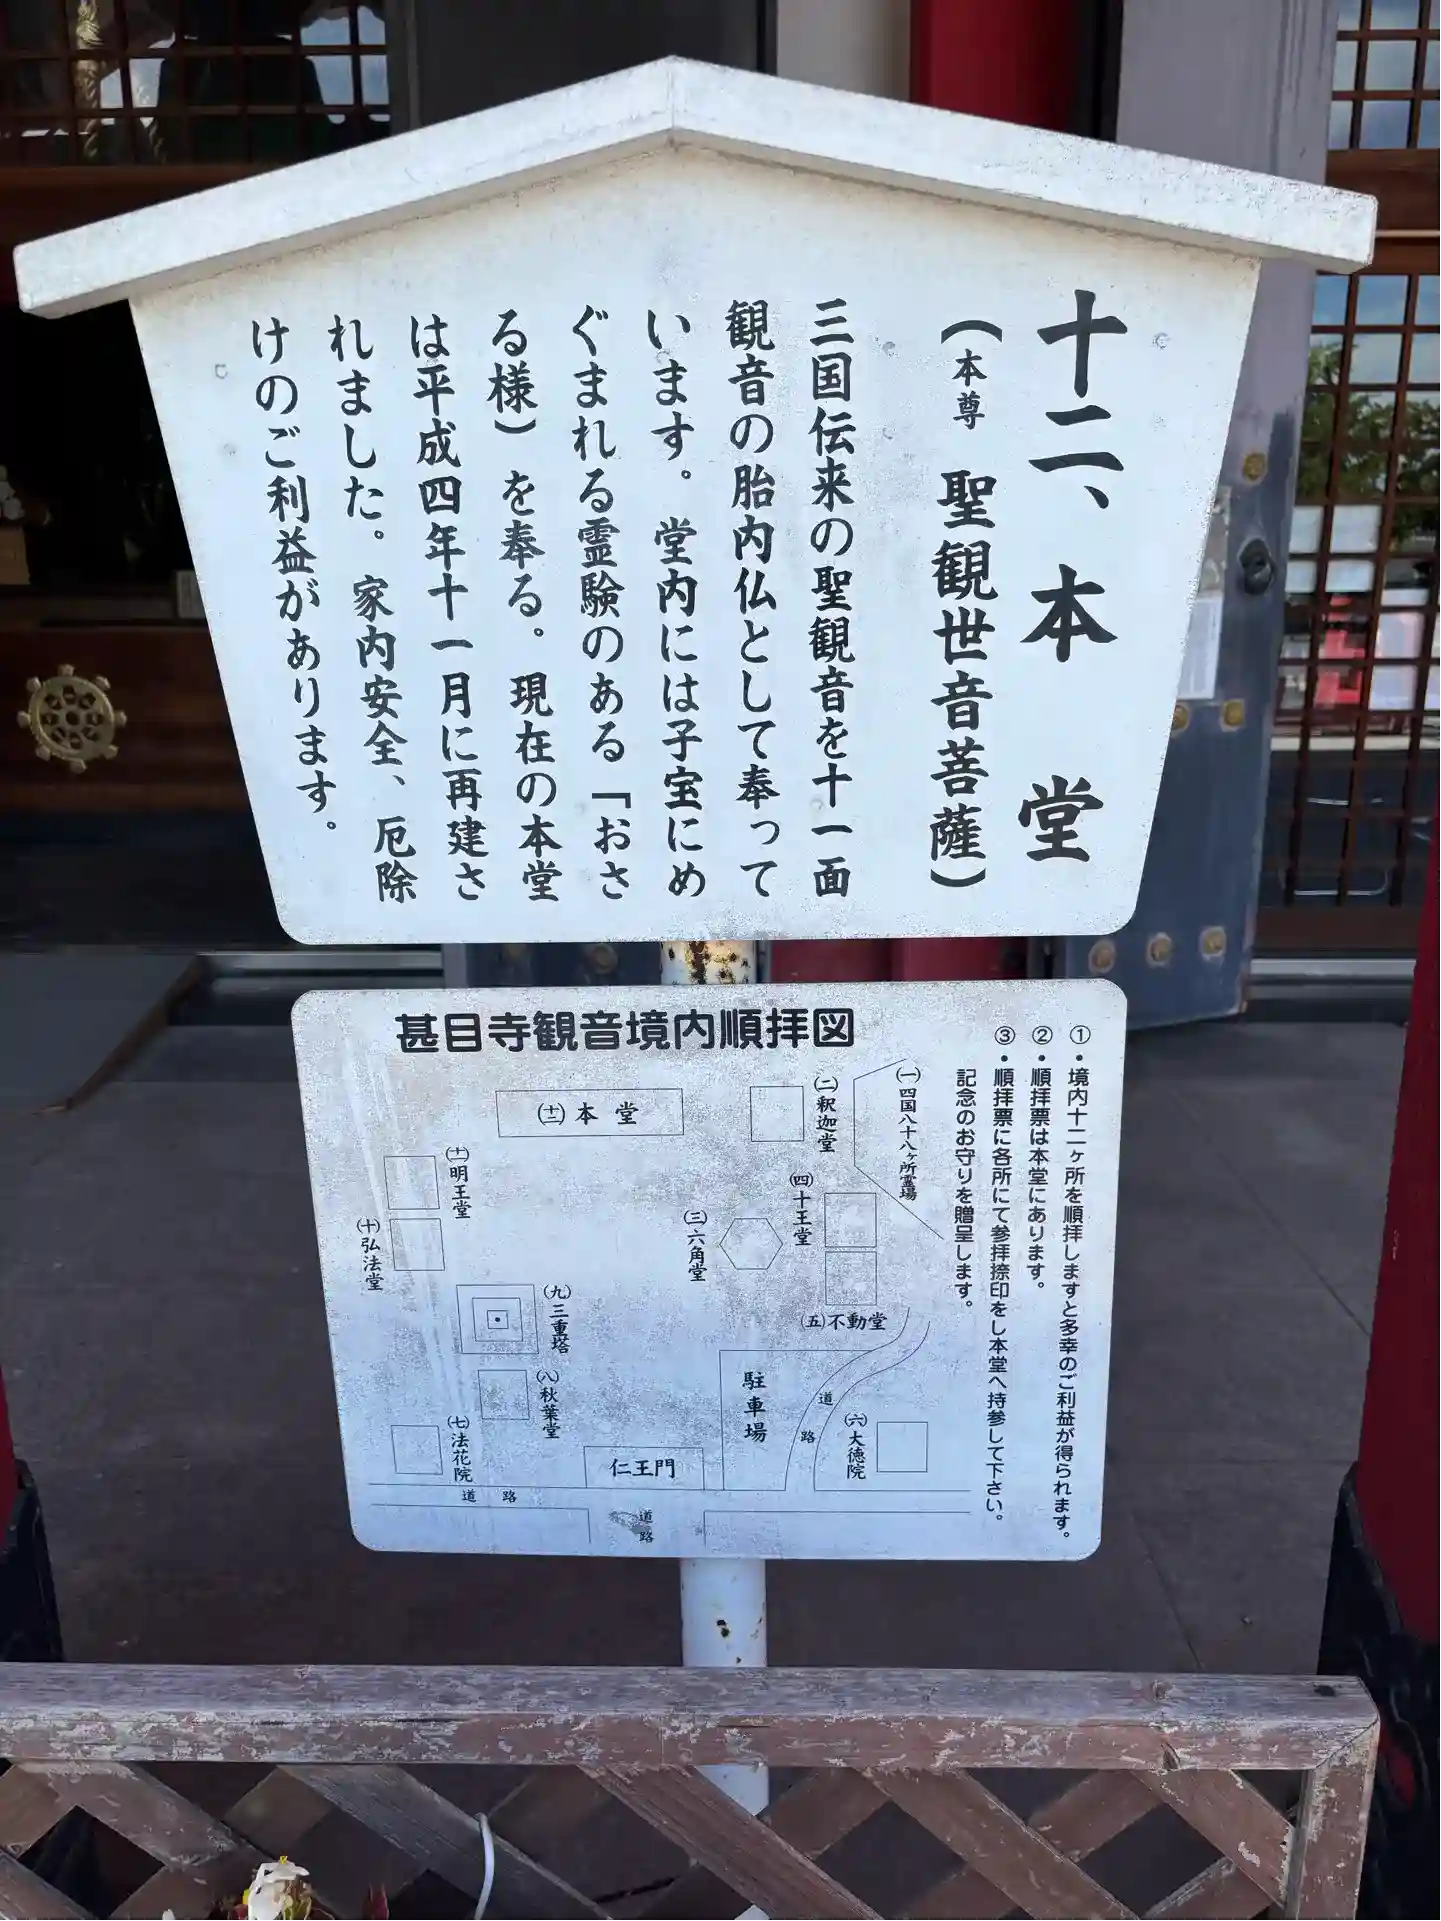 十二、本堂
（本尊 聖観世音菩薩）
三国伝来の聖観音を十一面
観音の胎内仏として奉って
います。堂内には子宝にめ
ぐまれる霊験のある「おさ
る様）を奉る。現在の本堂
は平成四年十一月に再建さ
れました。家内安全、厄除
けのご利益があります。
甚目寺観音境内順拝図
①・境内十二ヶ所を順拝しますと多幸のご利益が得られます。
②・順拝票は本堂にあります。
③・順拝票に各所にて参拝捺印をし本堂へ持参して下さい。
記念のお守りを贈呈します。
㈠四国八十八ヶ所霊場
㈡釈迦堂
(十二)本堂
(十一)明王堂
㈣十王堂
㈢六角堂
㈩弘法堂
㈨三重塔
㈤不動堂
㈧秋葉堂
駐車場
道路
㈥大徳院
㈦法花院
仁王門
道路
道路